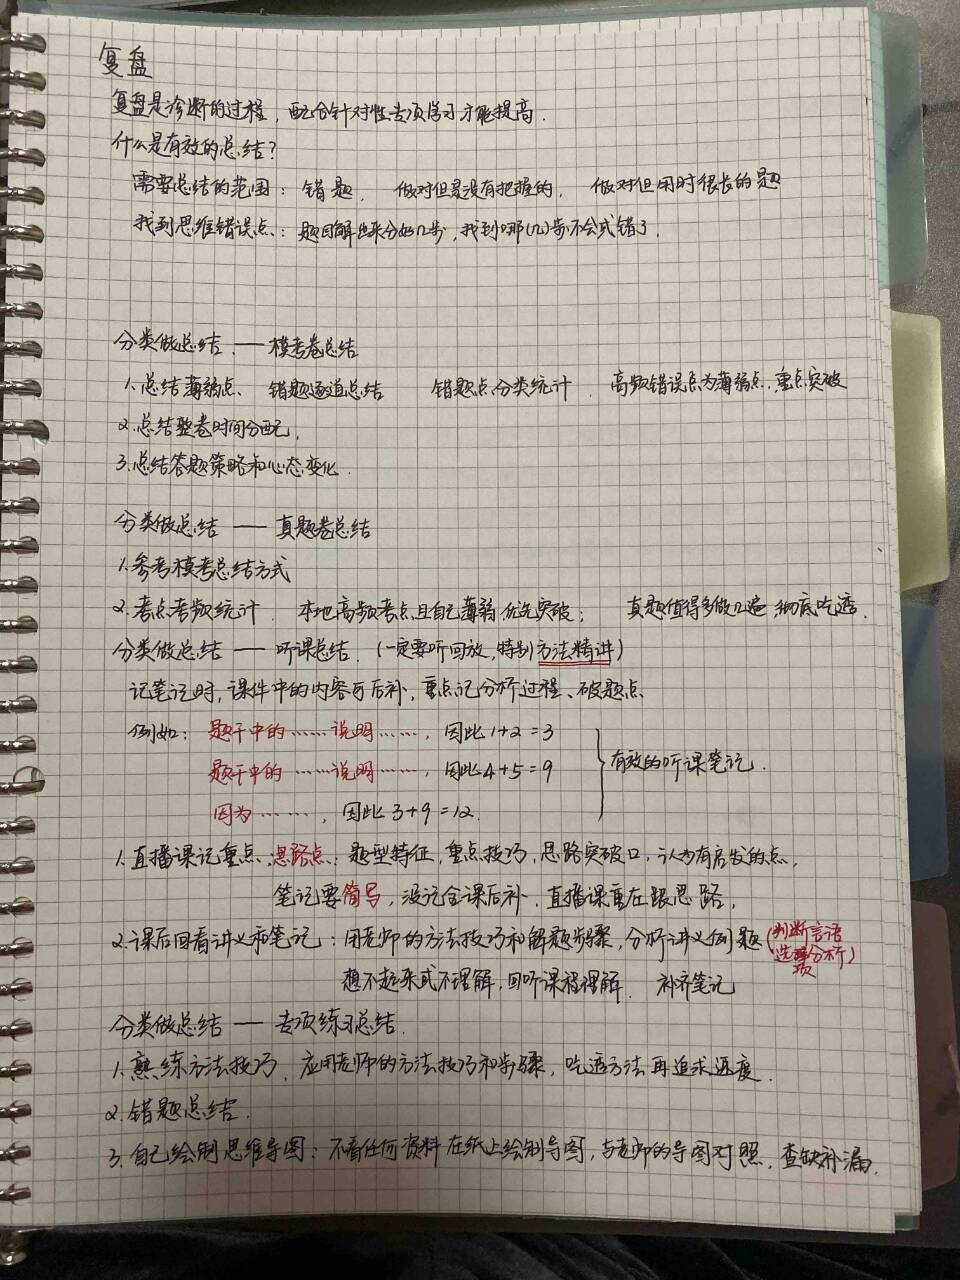 复盘
复盘是诊断的过程，配合针对性专项学习才能提高.
什么是有效的总结?
需要总结的范围：错题， 做对但是没有把握的， 做对但用时很长的题
找到思维错误点：题目解出来分好几步，找到哪(几)步不会或错了.
分类做总结 —— 模考卷总结
1.总结薄弱点、错题逐道总结 错题点分类统计. 高频错误点为薄弱点，重点突破
2.总结整卷时间分配.
3.总结答题策略和心态变化.
分类做总结 —— 真题卷总结
1.参考模考总结方式
2.考点考频统计 本地高频考点且自己薄弱，优先突破； 真题值得多做几遍 彻底吃透.
分类做总结 —— 听课总结.（一定要听回放，特别方法精讲）
记笔记时，课件中的内容可后补，重点记分析过程、破题点.
例如：题干中的……说明……，因此1+2=3
题干中的……说明……，因此4+5=9
有效的听课笔记.
因为……，因此3+9=12.
1.直播课记重点：思路点：题型特征，重点技巧，思路突破口，认为有启发的点.
笔记要简写，没记全课后补，直播课重在跟思路.
2.课后回看讲义和笔记：用老师的方法技巧和解题步骤，分析讲义例题（判断言语
选项分析）
想不起来或不理解，回听课程理解. 补齐笔记
分类做总结 —— 专项练习总结.
1.熟练方法技巧. 应用老师的方法技巧和步骤，吃透方法再追求速度.
2.错题总结.
3.自己绘制思维导图：不看任何资料在纸上绘制导图，与老师的导图对照，查缺补漏.